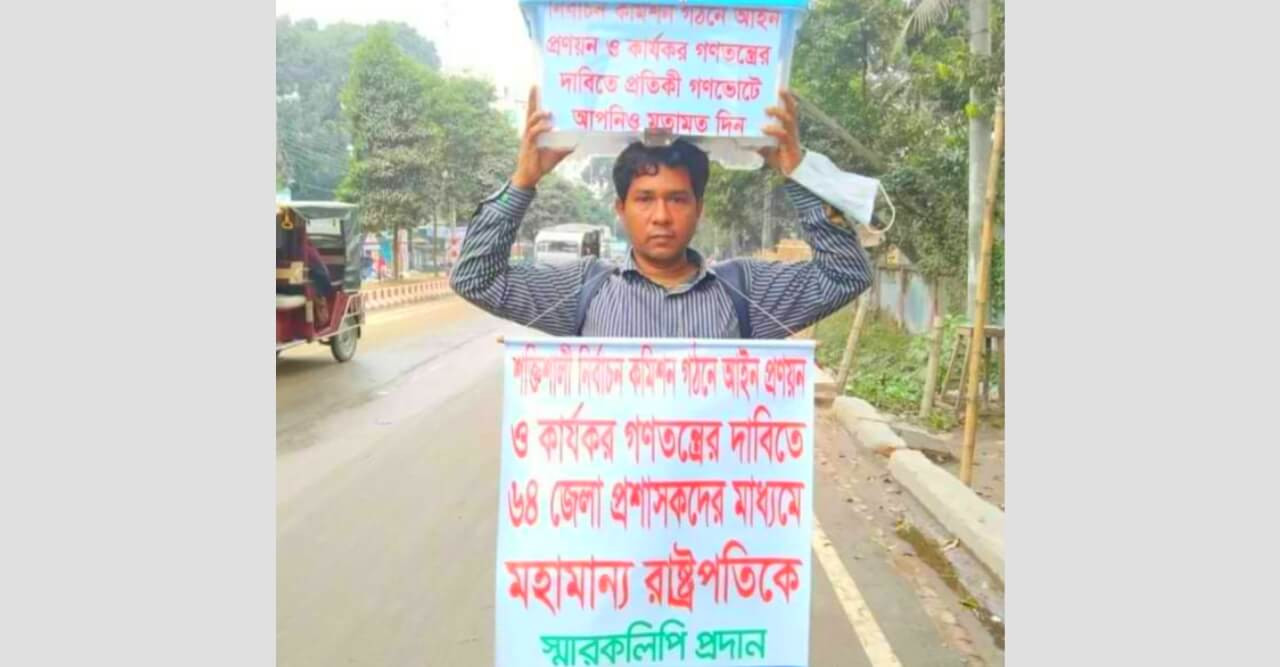 নির্বাচন কমিশন গঠনে আইন
প্রণয়ন ও কার্যকর গণতন্ত্রের
দাবিতে প্রতিকী গণভোটে
আপনিও মতামত দিন
শক্তিশালী নির্বাচন কমিশন গঠনে আইন প্রণয়ন
ও কার্যকর গণতন্ত্রের দাবিতে
৬৪ জেলা প্রশাসকদের মাধ্যমে
মহামান্য রাষ্ট্রপতিকে
স্মারকলিপি প্রদান